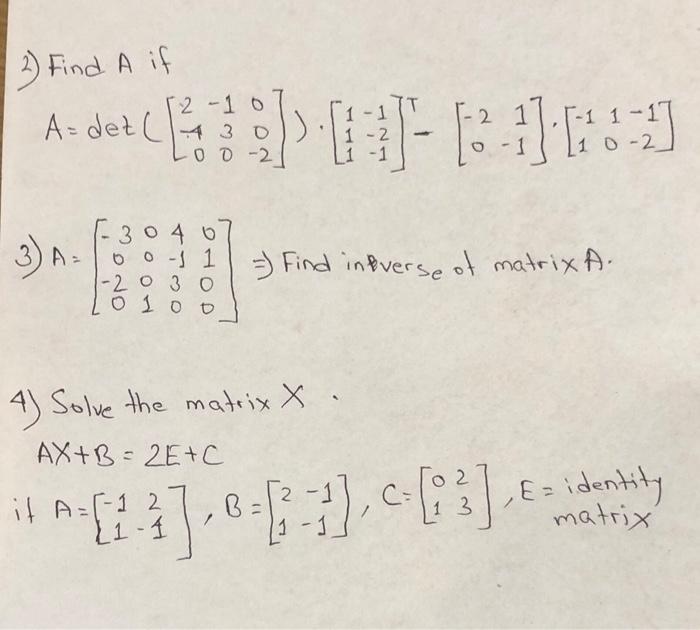 2) Find A if
A = det ( [ 2 -1 0 ; -4 3 0 ; 0 0 -2 ] ) · [ 1 -1 ; 1 -2 ; 1 -1 ]^T - [ -2 1 ; 0 -1 ] · [ -1 1 -1 ; 1 0 -2 ]
3) A = [ -3 0 4 0 ; 0 0 -1 1 ; -2 0 3 0 ; 0 1 0 0 ] ⇒ Find inverse of matrix A.
4) Solve the matrix X .
AX+B = 2E+C
if A = [ -1 2 ; 1 -1 ] , B = [ 2 -1 ; 1 -1 ] , C = [ 0 2 ; 1 3 ] , E = identity
matrix